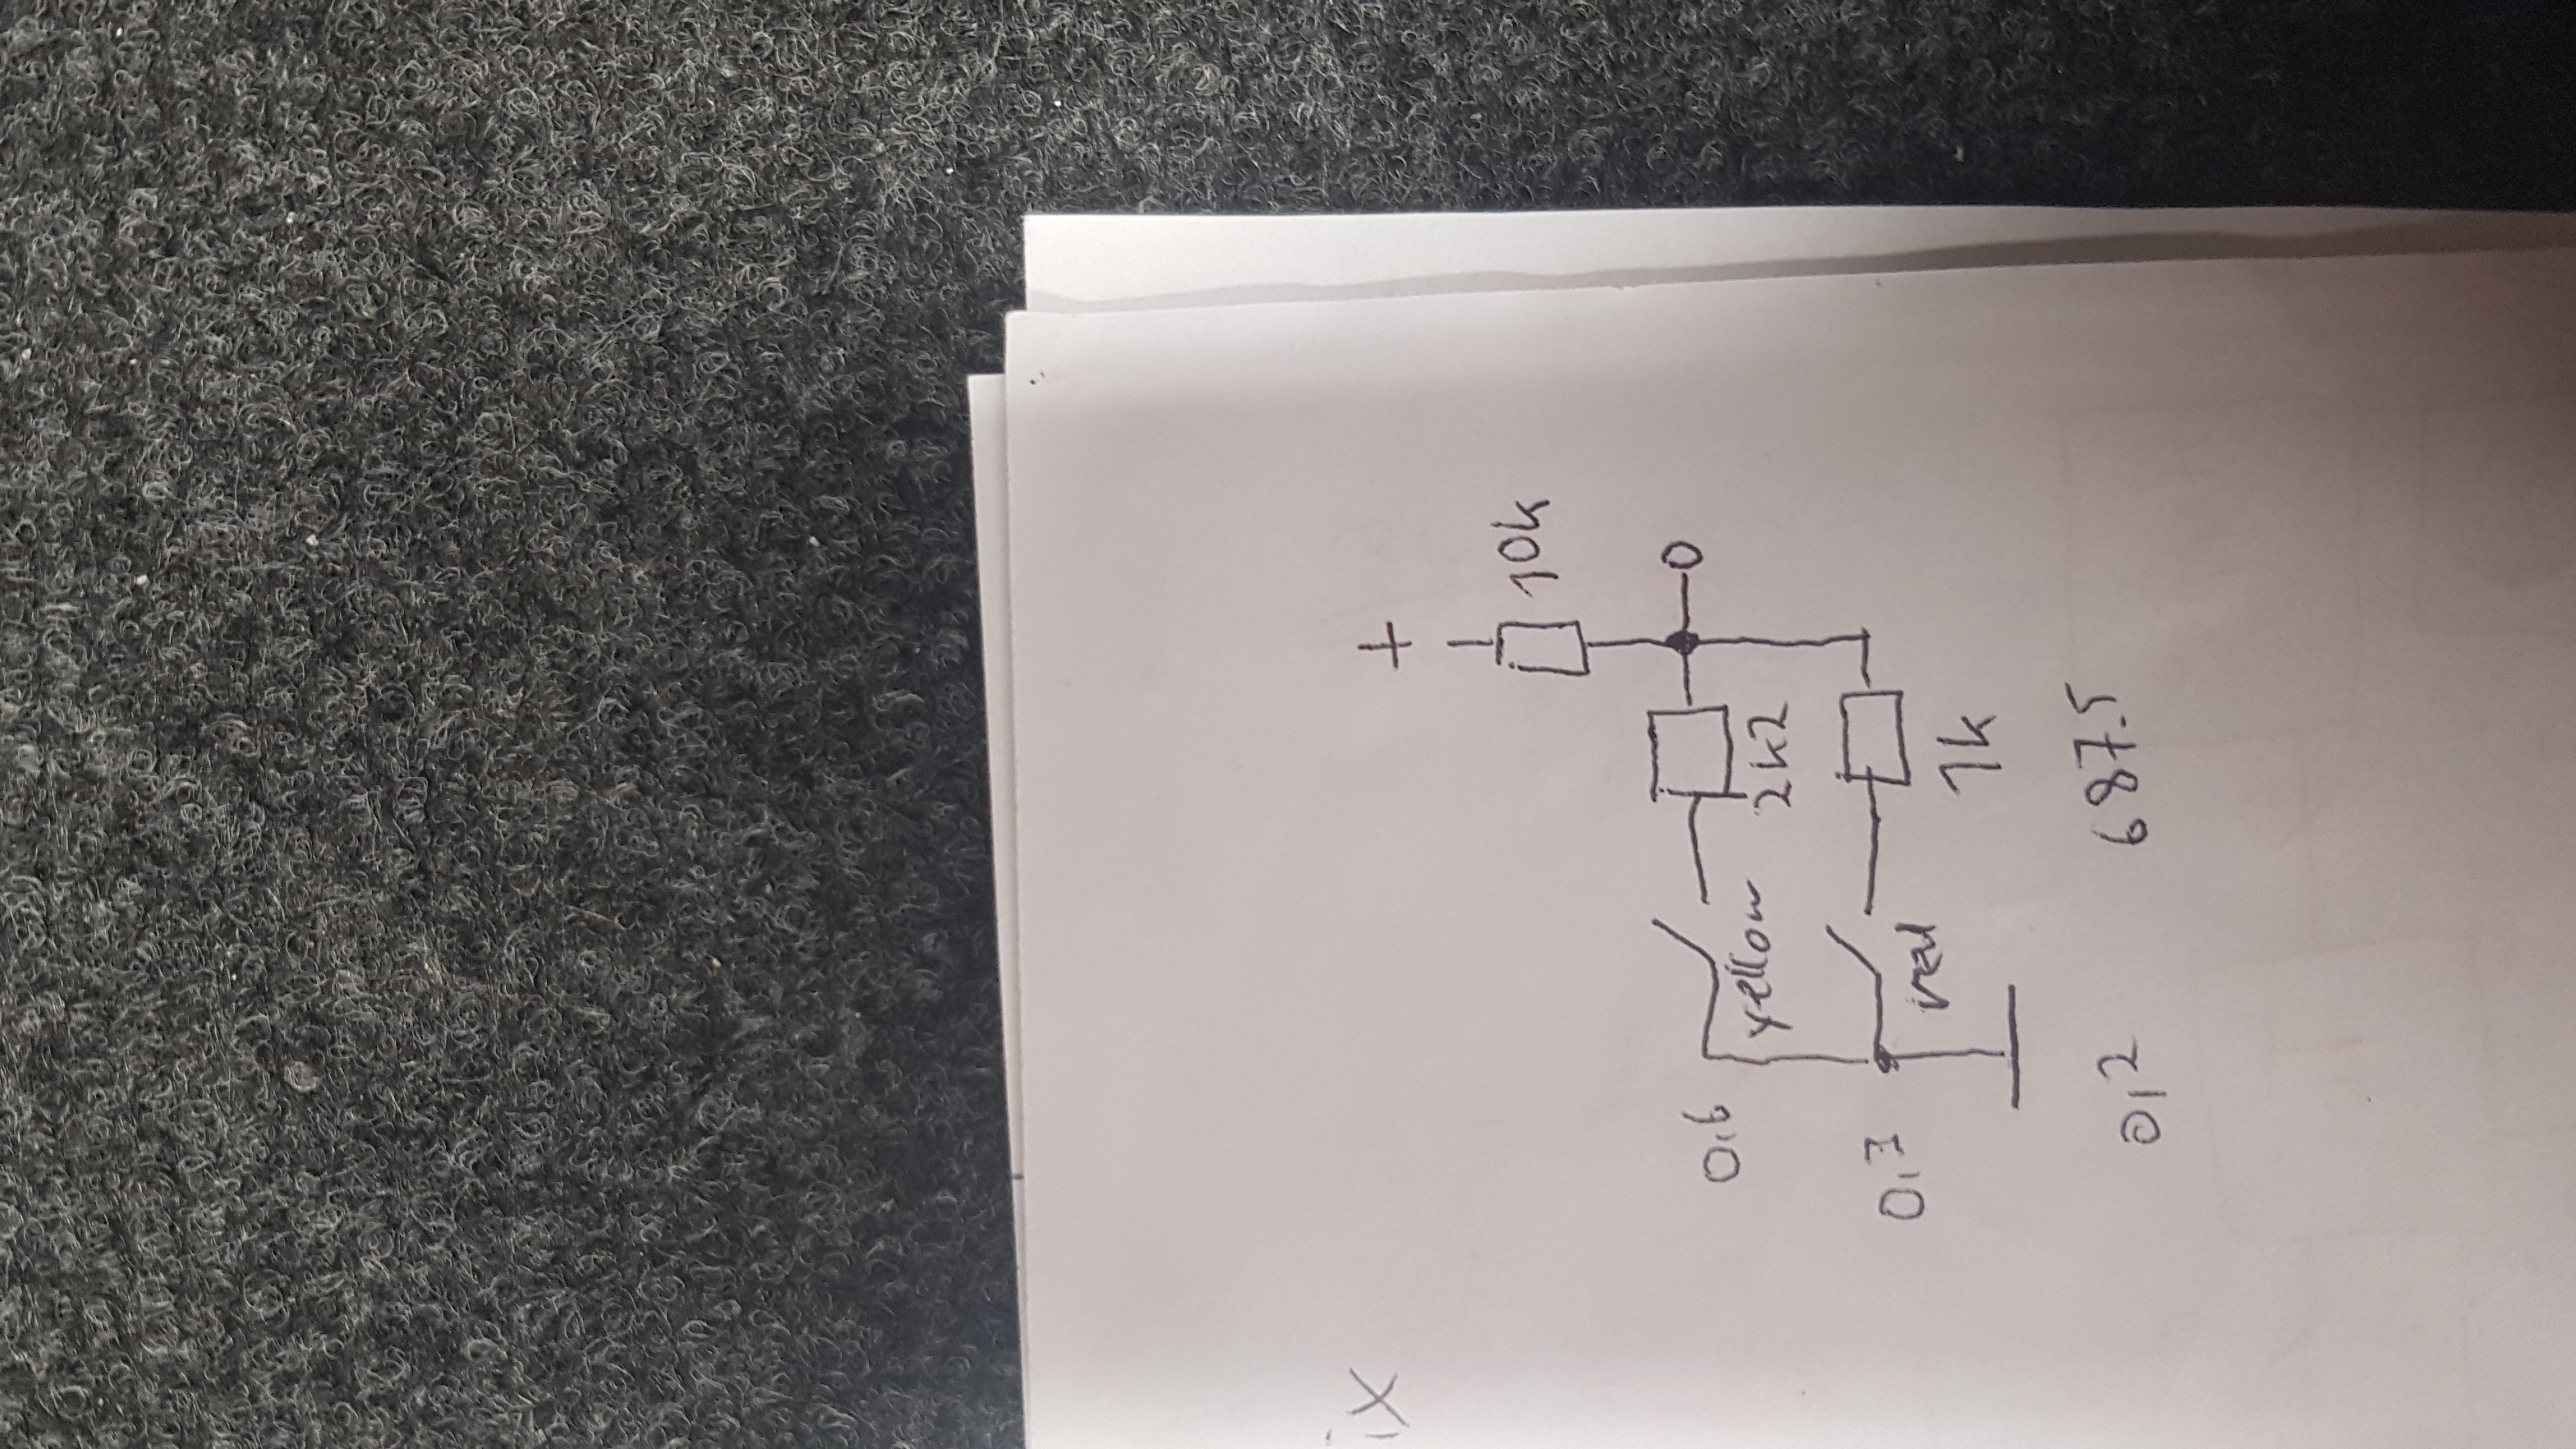 ix
+
10k
0,6
0
yellow
2k2
0,3
red
1k
0,2 687.5